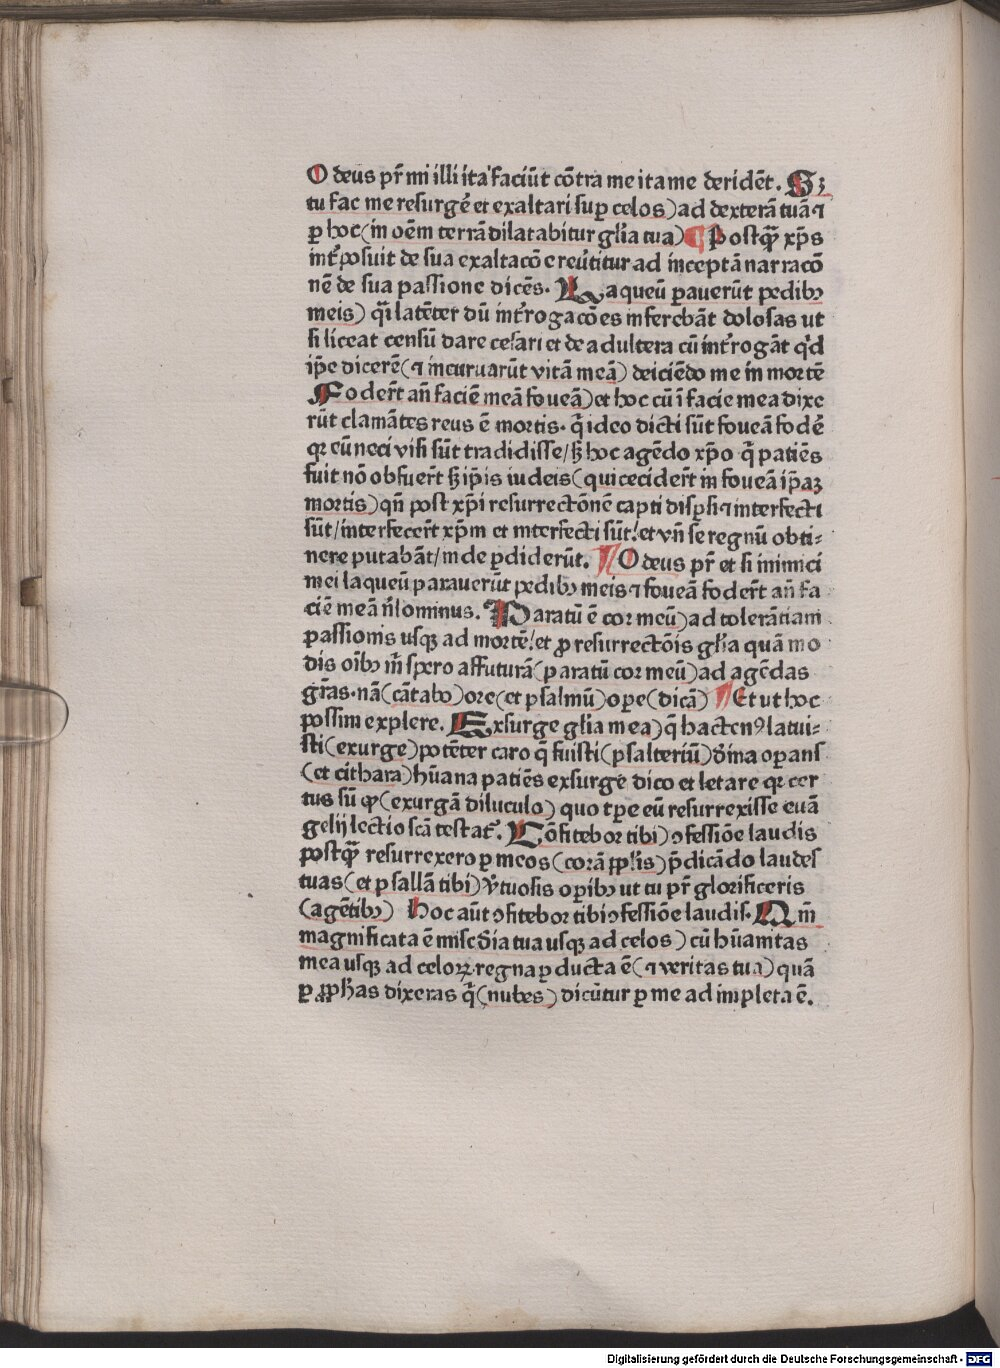 O deus pr̄ mi illi ita faciūt cōtra me ita me deridēt. Sꝫ
tu fac me resurgē et exaltari suꝑ celos) ad dexterā tuā ⁊
ꝑ hoc (in oēm terrā dilatabitur glīa tua) ¶ Postqꝫ̄ xp̄s
int̄ꝑosuit de sua exaltacōe reūtitur ad inceptā narracō
nē de sua passione dicēs. Laqueū ꝑauerūt pedibꝰ
meis) qꝛ latēter dū int̄rogacōes inferebāt dolosas ut
si liceat censū dare cesari et de adultera cū int̄rogāt qͥd
ip̄e dicerē (⁊ incuruarūt vitā meā) deiciēdo me in mortē
Foder̄t an̄ faciē meā foueā) et hoc cū ī facie mea dixe
rūt clamātes reus ē mortis. q̄ ideo dicti sūt foueā fodē
qꝛ eū neci visi sūt tradidisse / sꝫ hoc agēdo xp̄o q̄ patiēs
fuit nō obfuer̄t sꝫ ip̄is iudeis (qui cecidert̄ in foueā ip̄aꝝ
mortis) qn̄ post xp̄i resurrectōnē capti disꝑsi ⁊ interfecti
sūt / interfecer̄t xp̄m et interfecti sūt: et vn̄ se regnū obti-
nere putabāt / inde ꝑdiderūt. ¶ O deus pr̄ et si inimici
mei laqueū parauerūt pedibꝰ meis ⁊ foueā foder̄t an̄ fa
ciē meā n̄lominus. Paratū ē cor meū) ad tolerātiam
passionis usqꝫ ad mortē: et ꝓ resurrectōis glīa quā mo
dis oībꝰ m̄ spero affuturā (paratū cor meū) ad agēdas
gr̄as. nā (cātabo) ore (et psalmū) oꝑe (dicā) ¶ Et ut hoc
possim explere. Exsurge glīa mea) q̄ hactenꝰ latui-
sti (exurge) potēter caro q̄ fuisti (psalteriū) dīna oꝑans
(et cithara) hūana patiēs exsurge dico et letare qꝛ cer
tus sū ꝙ (exurgā diluculo) quo tꝑe eū resurrexisse euā
gelij lectio scā testat̄. Cōfitebor tibi) ꝯfessiōe laudis
postqꝫ̄ resurrexero ꝑ meos (corā pp̄lis) p̄dicādo laudes
tuas (et psallā tibi) v̄tuosis oꝑibꝰ ut tu pr̄ glorificeris
(agētibꝰ) Hoc aūt ꝯfitebor tibi ꝯfessiōe laudis. Qm̄
magnificata ē misc̄dia tua usqꝫ ad celos) cū hūanitas
mea usqꝫ ad celoꝝ regna ꝑducta ē (⁊ veritas tua) quā
ꝑ ꝓphas dixeras q̄ (nubes) dicūtur ꝑ me adimpleta ē.
Digitalisierung gefördert durch die Deutsche Forschungsgemeinschaft - DFG